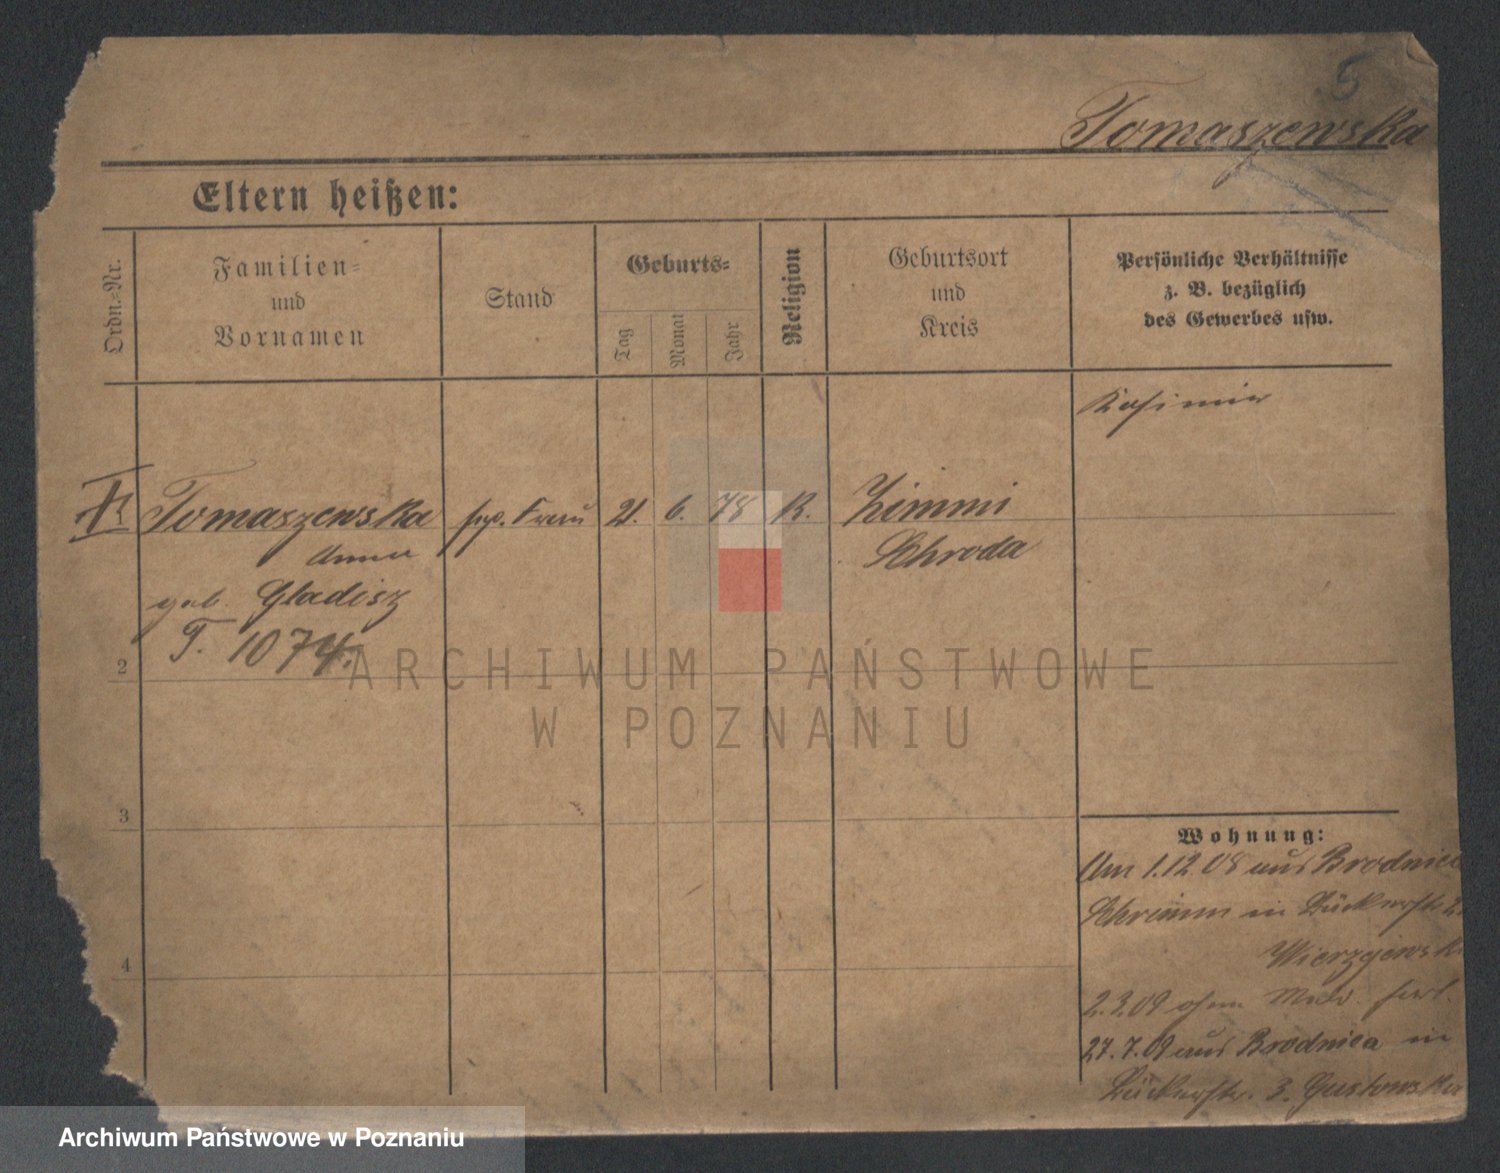 5
Tomaszewska
Eltern heißen:
Ordn.-Nr.
Familien-
und
Vornamen
Stand
Geburts-
Tag
Monat
Jahr
Religion
Geburtsort
und
Kreis
Persönliche Verhältnisse
z. B. bezüglich
des Gewerbes usw.
Kasimir
Tomaszewska
Anna
geb. Gladisz
T. 1074.
Frau
21. 6. 78
K.
Zimmi
Schroda
2
3
4
Wohnung:
Am 1.12.08 aus Brodnica
Schrimm in
2.3.09 ohne Meld. fort.
27.7.09 aus Brodnica in
3. Gustowska
ARCHIWUM PAŃSTWOWE
W POZNANIU
Archiwum Państwowe w Poznaniu